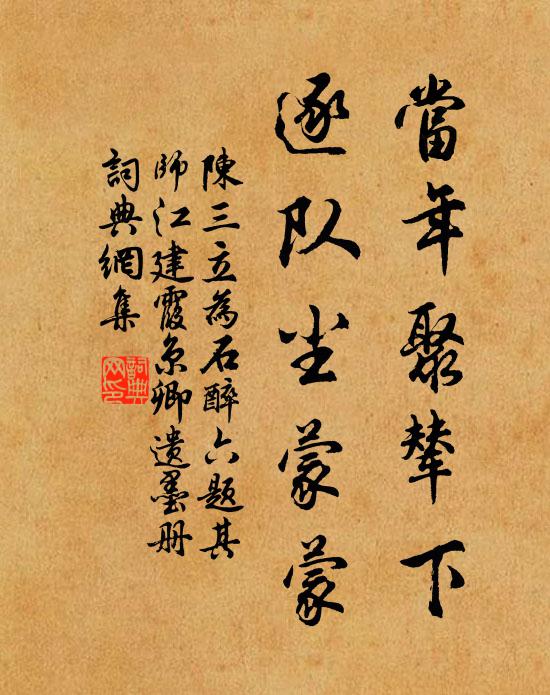 當年聚輦下
逐队尘蒙蒙
陳三立為石醉六題其
師江建霞京卿遺墨册
詞典網集
詞典网印